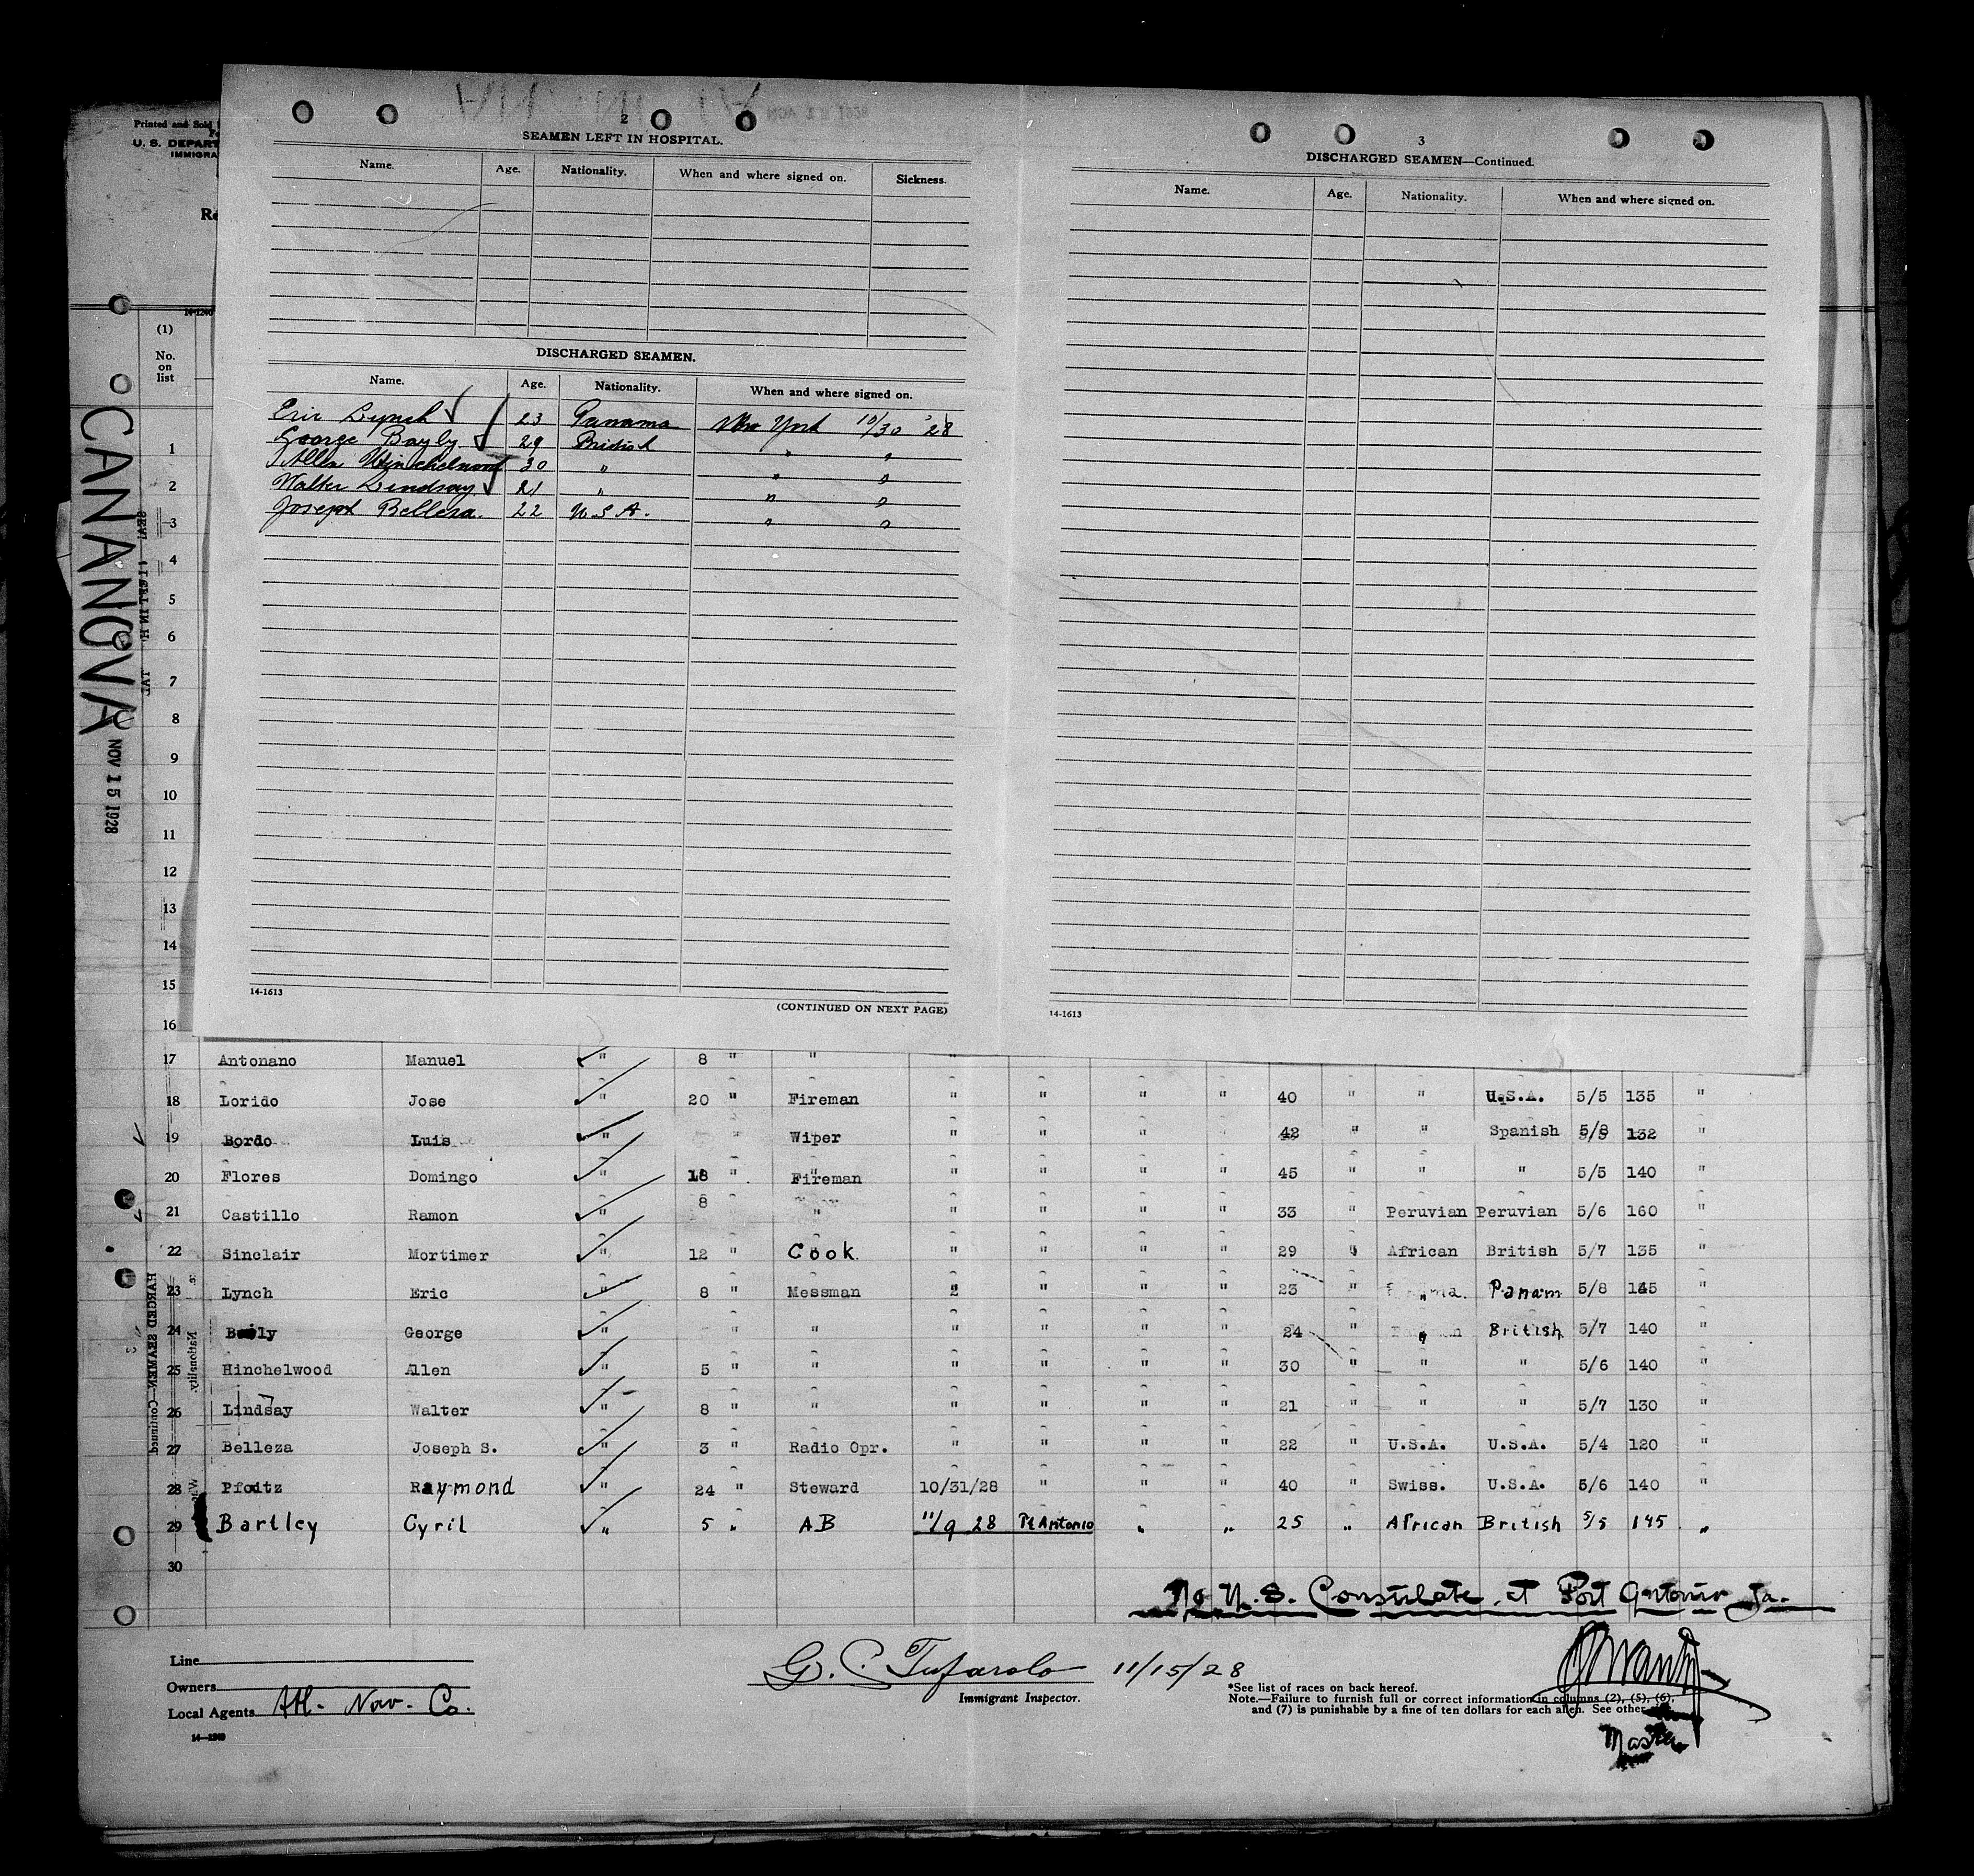 Printed and Sold
U. S. DEPART
IMMIGRA
Re
14-1240
(1)
No.
on
list
CANANOVA
NOV 15 1928
2
SEAMEN LEFT IN HOSPITAL.
Name. Age. Nationality. When and where signed on. Sickness.
DISCHARGED SEAMEN.
Name. Age. Nationality. When and where signed on.
Eric Lynch 23 Panama New York 10/30 '28
George Bayly 29 British " "
Allen Hinchelwood 30 " " "
Walter Lindsay 21 " " "
Joseph Belleza. 22 U.S.A. " "
14-1613
(CONTINUED ON NEXT PAGE)
3
DISCHARGED SEAMEN—Continued.
Name. Age. Nationality. When and where signed on.
14-1613
1
2
3
4
5
6
7
8
9
10
11
12
13
14
15
16
17 Antonano Manuel " 8 " " "
18 Lorido Jose " 20 " Fireman " " " " 40 " " U.S.A. 5/5 135 "
19 Bordo Luis " " Wiper " " " " 42 " " Spanish 5/8 132 "
20 Flores Domingo " 18 " Fireman " " " " 45 " " " 5/5 140 "
21 Castillo Ramon " 8 " " " " " " 33 " Peruvian Peruvian 5/6 160 "
22 Sinclair Mortimer " 12 " Cook " " " " 29 " African British 5/7 135 "
23 Lynch Eric " 8 " Messman " " " " 23 " " Panam 5/8 145 "
24 George " " " " " " " 24 " " British 5/7 140 "
25 Hinchelwood Allen " 5 " " " " " " 30 " " " 5/6 140 "
26 Lindsay Walter " 8 " " " " " " 21 " " " 5/7 130 "
27 Belleza Joseph S. " 3 " Radio Opr. " " " " 22 " U.S.A. U.S.A. 5/4 120 "
28 Pfoitz Raymond " 24 " Steward 10/31/28 " " " 40 " Swiss. U.S.A. 5/6 140 "
29 Bartley Cyril " 5 " AB 11/9 28 Pt Antonio " " 25 " African British 5/5 145 "
30
No U.S. Consulate at Port Antonio Ja.
Line
Owners
Local Agents Atl. Nav. Co.
14—1240
G. C. Tufarolo 11/15/28
Immigrant Inspector.
*See list of races on back hereof.
Note.—Failure to furnish full or correct information in columns (2), (5), (6),
and (7) is punishable by a fine of ten dollars for each alien. See other
Master